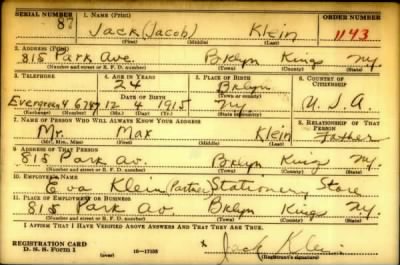 SERIAL NUMBER 1. NAME (Print) ORDER NUMBER
87 Jack (Jacob) Klein 1143
(First) (Middle) (Last)
2. ADDRESS (Print)
815 Park Ave. Bklyn Kings N.Y.
(Number and street or R. F. D. number) (Town) (County) (State)
3. TELEPHONE 4. AGE IN YEARS 5. PLACE OF BIRTH 6. COUNTRY OF CITIZENSHIP
24 Bklyn
DATE OF BIRTH (Town or county)
Evergreen 4 12 4 1915 N.Y. U.S.A.
(Exchange) (Number) (Mo.) (Day) (Yr.) (State or country)
7. NAME OF PERSON WHO WILL ALWAYS KNOW YOUR ADDRESS 8. RELATIONSHIP OF THAT PERSON
Mr. Max Klein Father
(Mr., Mrs., Miss) (First) (Middle) (Last)
9. ADDRESS OF THAT PERSON
815 Park Av. Bklyn Kings N.Y.
(Number and street or R. F. D. number) (Town) (County) (State)
10. EMPLOYER'S NAME
Eva Klein (Partner) Stationery Store
11. PLACE OF EMPLOYMENT OR BUSINESS
815 Park Av Bklyn Kings N.Y.
(Number and street or R. F. D. number) (Town) (County) (State)
I AFFIRM THAT I HAVE VERIFIED ABOVE ANSWERS AND THAT THEY ARE TRUE.
REGISTRATION CARD
D. S. S. Form 1 (over) 16-17105 Jack Klein
(Registrant's signature)